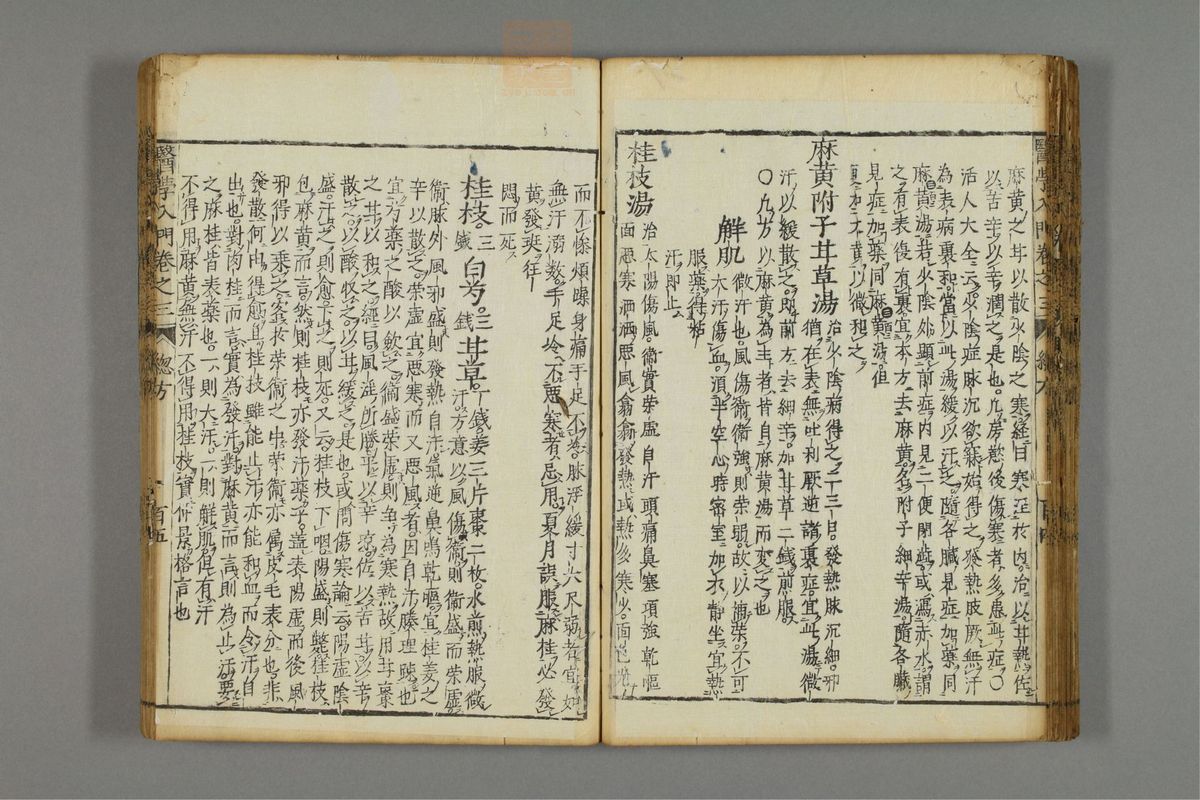 麻黃之甘以散少陰之寒經曰寒淫於內治以甘熱佐
以苦辛以辛潤之是也凡房慾後傷寒者多患此症〇
活人大全云少陰症脉沉欲寐始得之發熱肢厥無汗
為表病裏和當以此湯緩以汗之隨各臟見症加藥同
麻黃湯若少陰外顯前症內見二便閉澁或瀉赤水謂
之有表後有裏宜本方去麻黃名附子細辛湯隨各臟
見症加藥同麻黃湯但
大黃以微和之
麻黃附子甘草湯 治少陰病得之二三日發熱脉沉細邪
猶在表無吐利厥逆諸裏症宜此湯微
汗以緩散之即前方去細辛加甘草二錢煎服
〇凡方以麻黃為主者皆自麻黃湯而変之也
解肌 微汗也風傷衛衛強則榮弱故以補榮不可
大汗傷血須平空心時密室加衣靜坐宜熱
服藥得粘
汗即止
桂枝湯 治太陽傷風衛實榮虛自汗頭痛鼻塞項強乾嘔
面惡寒洒洒惡風翕翕發熱或熱多寒少面色光
醫學入門卷之三 總方
而不慘煩躁身痛手足不冷脉浮緩寸大尺弱者宜如
無汗溺數手足冷不惡寒者忌用夏月誤服麻桂必發
黃發斑狂
悶而死
桂枝三錢白芍三錢甘草一錢姜三片棗二枚水煎熱服微
汗方意以風傷衛則衛盛而榮虛
衛脉外風邪盛則發熱自汗氣逆鼻鳴乾嘔宜桂姜之
辛以散之榮虛宜惡寒而又惡風者因自汗腠理踈也
宜芍藥之酸以歛之衛盛榮虛則為寒熱故用甘棗
之甘以和之經曰風淫所勝平以辛凉佐以苦甘以辛
散之以酸收之以甘緩之是也或問傷寒論云陽虛陰
盛汗之則愈下之則死又云桂枝下咽陽盛則斃桂枝
包麻黃而言然則桂枝亦發汗藥乎盖表陽虛而後風
邪得以乗之客於榮衛之中榮衛亦屬皮毛表分也非
發散何由得愈且桂枝雖能止汗亦能和血而令汗自
出也對肉桂而言實為發汗對麻黃而言則為止汗要
之麻桂皆表藥也一則大汗一則解肌但有汗
不得用麻黃無汗不得用桂枝實仲景格言也
醫學入門卷之三 總方 百五